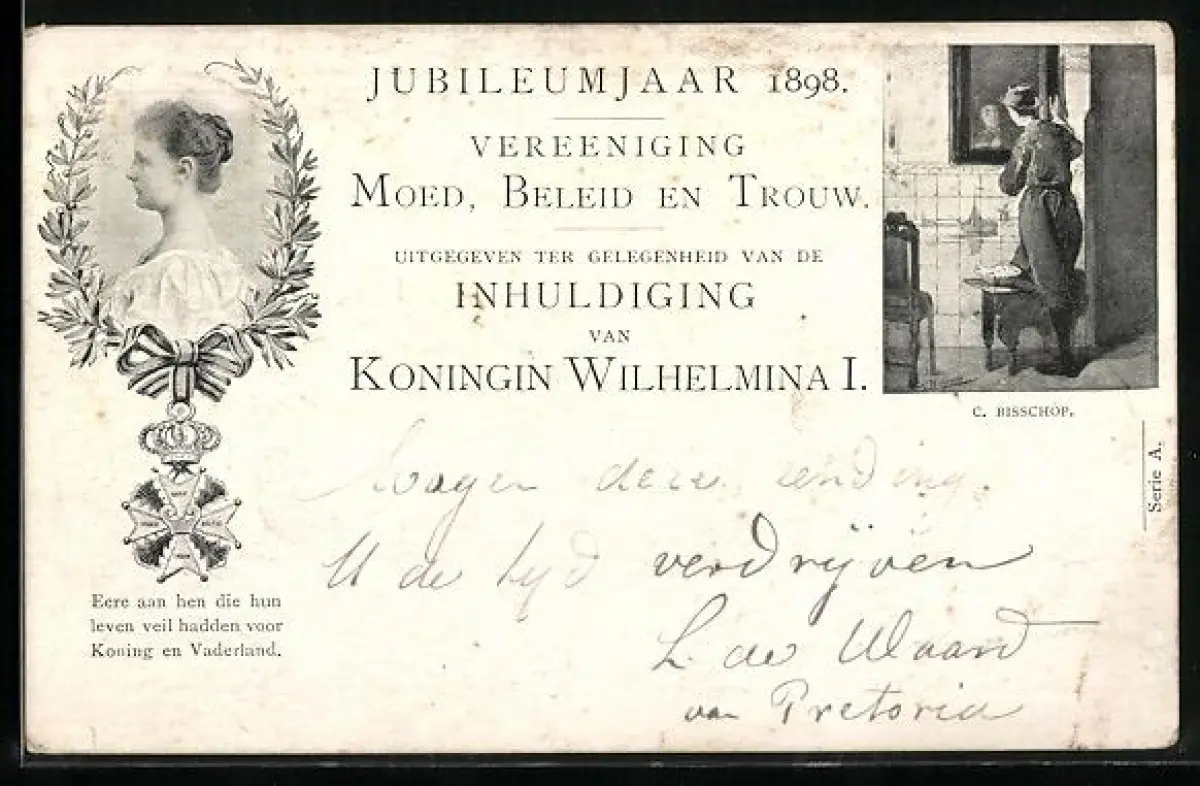 JUBILEUMJAAR 1898.
VEREENIGING
MOED, BELEID EN TROUW.
UITGEGEVEN TER GELEGENHEID VAN DE
INHULDIGING
VAN
KONINGIN WILHELMINA I.
C. BISSCHOP.
Serie A.
Eere aan hen die hun
leven veil hadden voor
Koning en Vaderland.
deze zending
U de tyd verdrijven
L. de Waard
van Pretoria